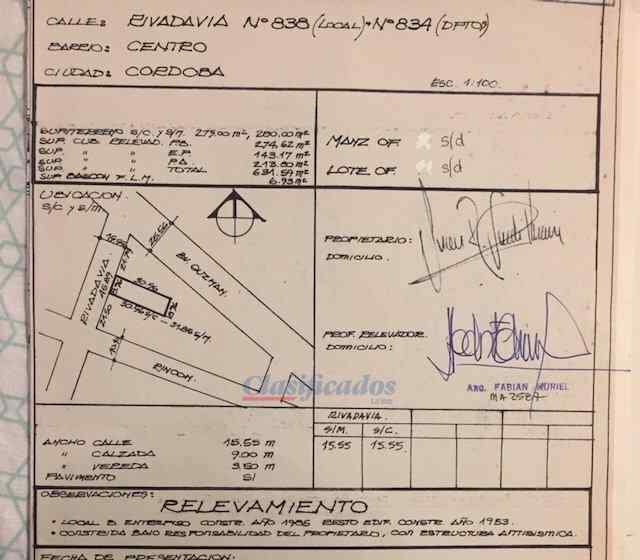 CALLE: RIVADAVIA Nº 838 (LOCAL) • Nº 834 (DPTOS)
BARRIO: CENTRO
CIUDAD: CORDOBA
ESC. 1:100.
SUP. TERRENO S/C. y S/M. 279.00 m², 280.00 m²
SUP. CUB. RELEVAD. P.B. 274,62 m²
SUP " " E.P. 143.17 m²
SUP " " P.A. 213.80 m²
SUP " " TOTAL 631.59 m²
SUP BALCON F.L.M. 6.93 m²
MANZ OF. s/d
LOTE OF. s/d
UBICACION
S/C y S/M
RIVADAVIA
BV. GUZMAN.
RINCON.
30.96 S/C - 31.80 S/M.
PROPIETARIO:
DOMICILIO.
PROF. RELEVADOR.
DOMICILIO:
ARQ. FABIAN MURIEL
Clasificados
LA VOZ
RIVADAVIA.
S/M. S/C.
15.55 15.55
ANCHO CALLE 15.55 m
" CALZADA 9.00 m
" VEREDA 3.50 m
PAVIMENTO SI
OBSERVACIONES:
RELEVAMIENTO
• LOCAL B ENTREPISO CONSTR. AÑO 1985 RESTO EDIF. CONSTR. AÑO 1953.
• CONSTRUIDA BAJO RESPONSABILIDAD DEL PROPIETARIO, CON ESTRUCTURA ANTISISMICA.
FECHA DE PRESENTACION: